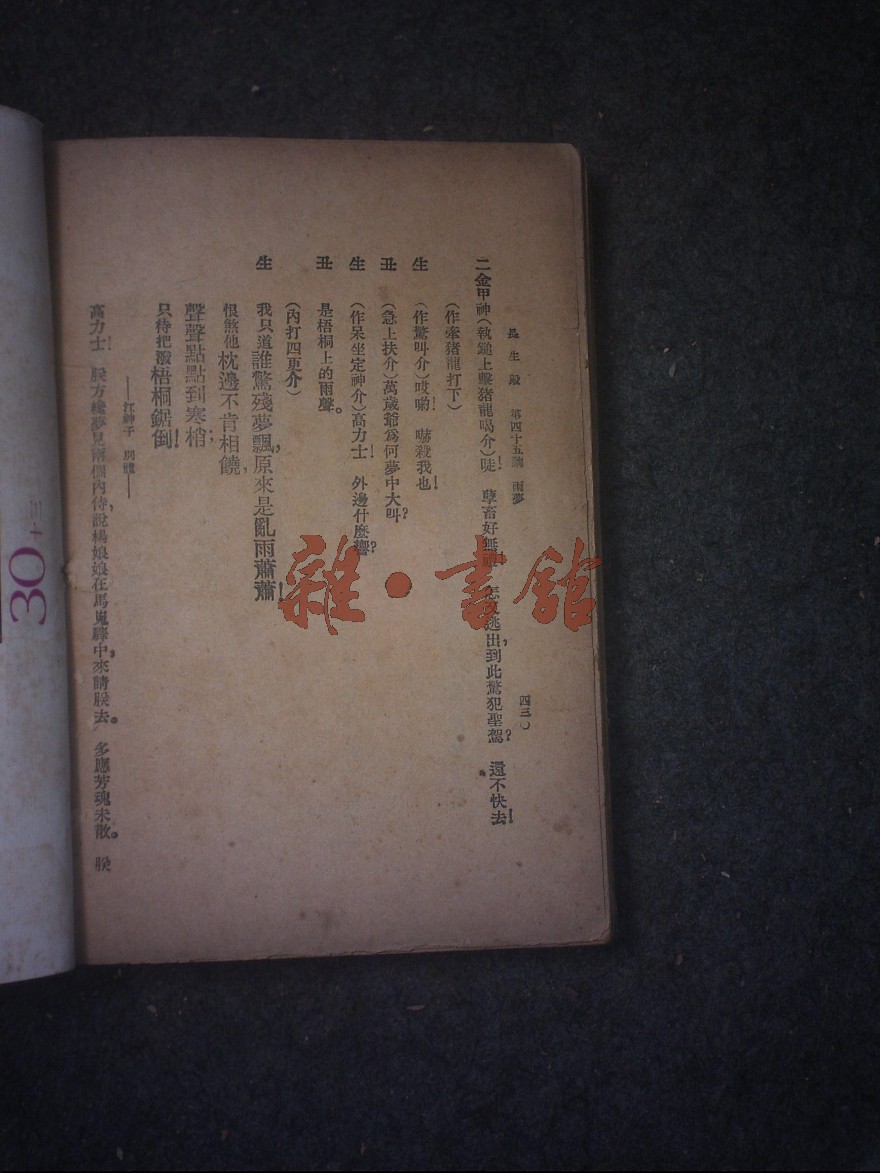 長生殿 第四十五齣 雨夢
四三〇
二金甲神(執鎚上擊豬龍喝介)唗! 孽畜好無 逃出,到此驚犯聖駕? 還不快去!
(作牽豬龍打下)
生 (作驚叫介)哎喲! 嚇殺我也!
丑 (急上扶介)萬歲爺爲何夢中大叫?
生 (作呆坐定神介)高力士! 外邊什麼響?
丑 是梧桐上的雨聲。
(內打四更介)
生 我只道誰驚殘夢飄,原來是亂雨蕭蕭!
恨煞他枕邊不肯相饒,
聲聲點點到寒梢;
只待把潑梧桐鋸倒!
——江神子 別體——
高力士! 朕方纔夢見兩個內侍,說楊娘娘在馬嵬驛中,來請朕去。 多應芳魂未散。 朕
雜·書館
30十三